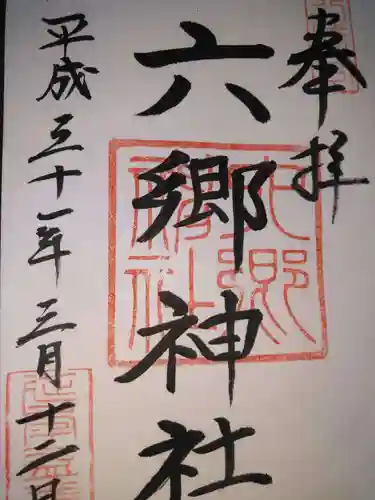 奉拝
六郷神社
平成三十一年三月十二日
六郷
神社